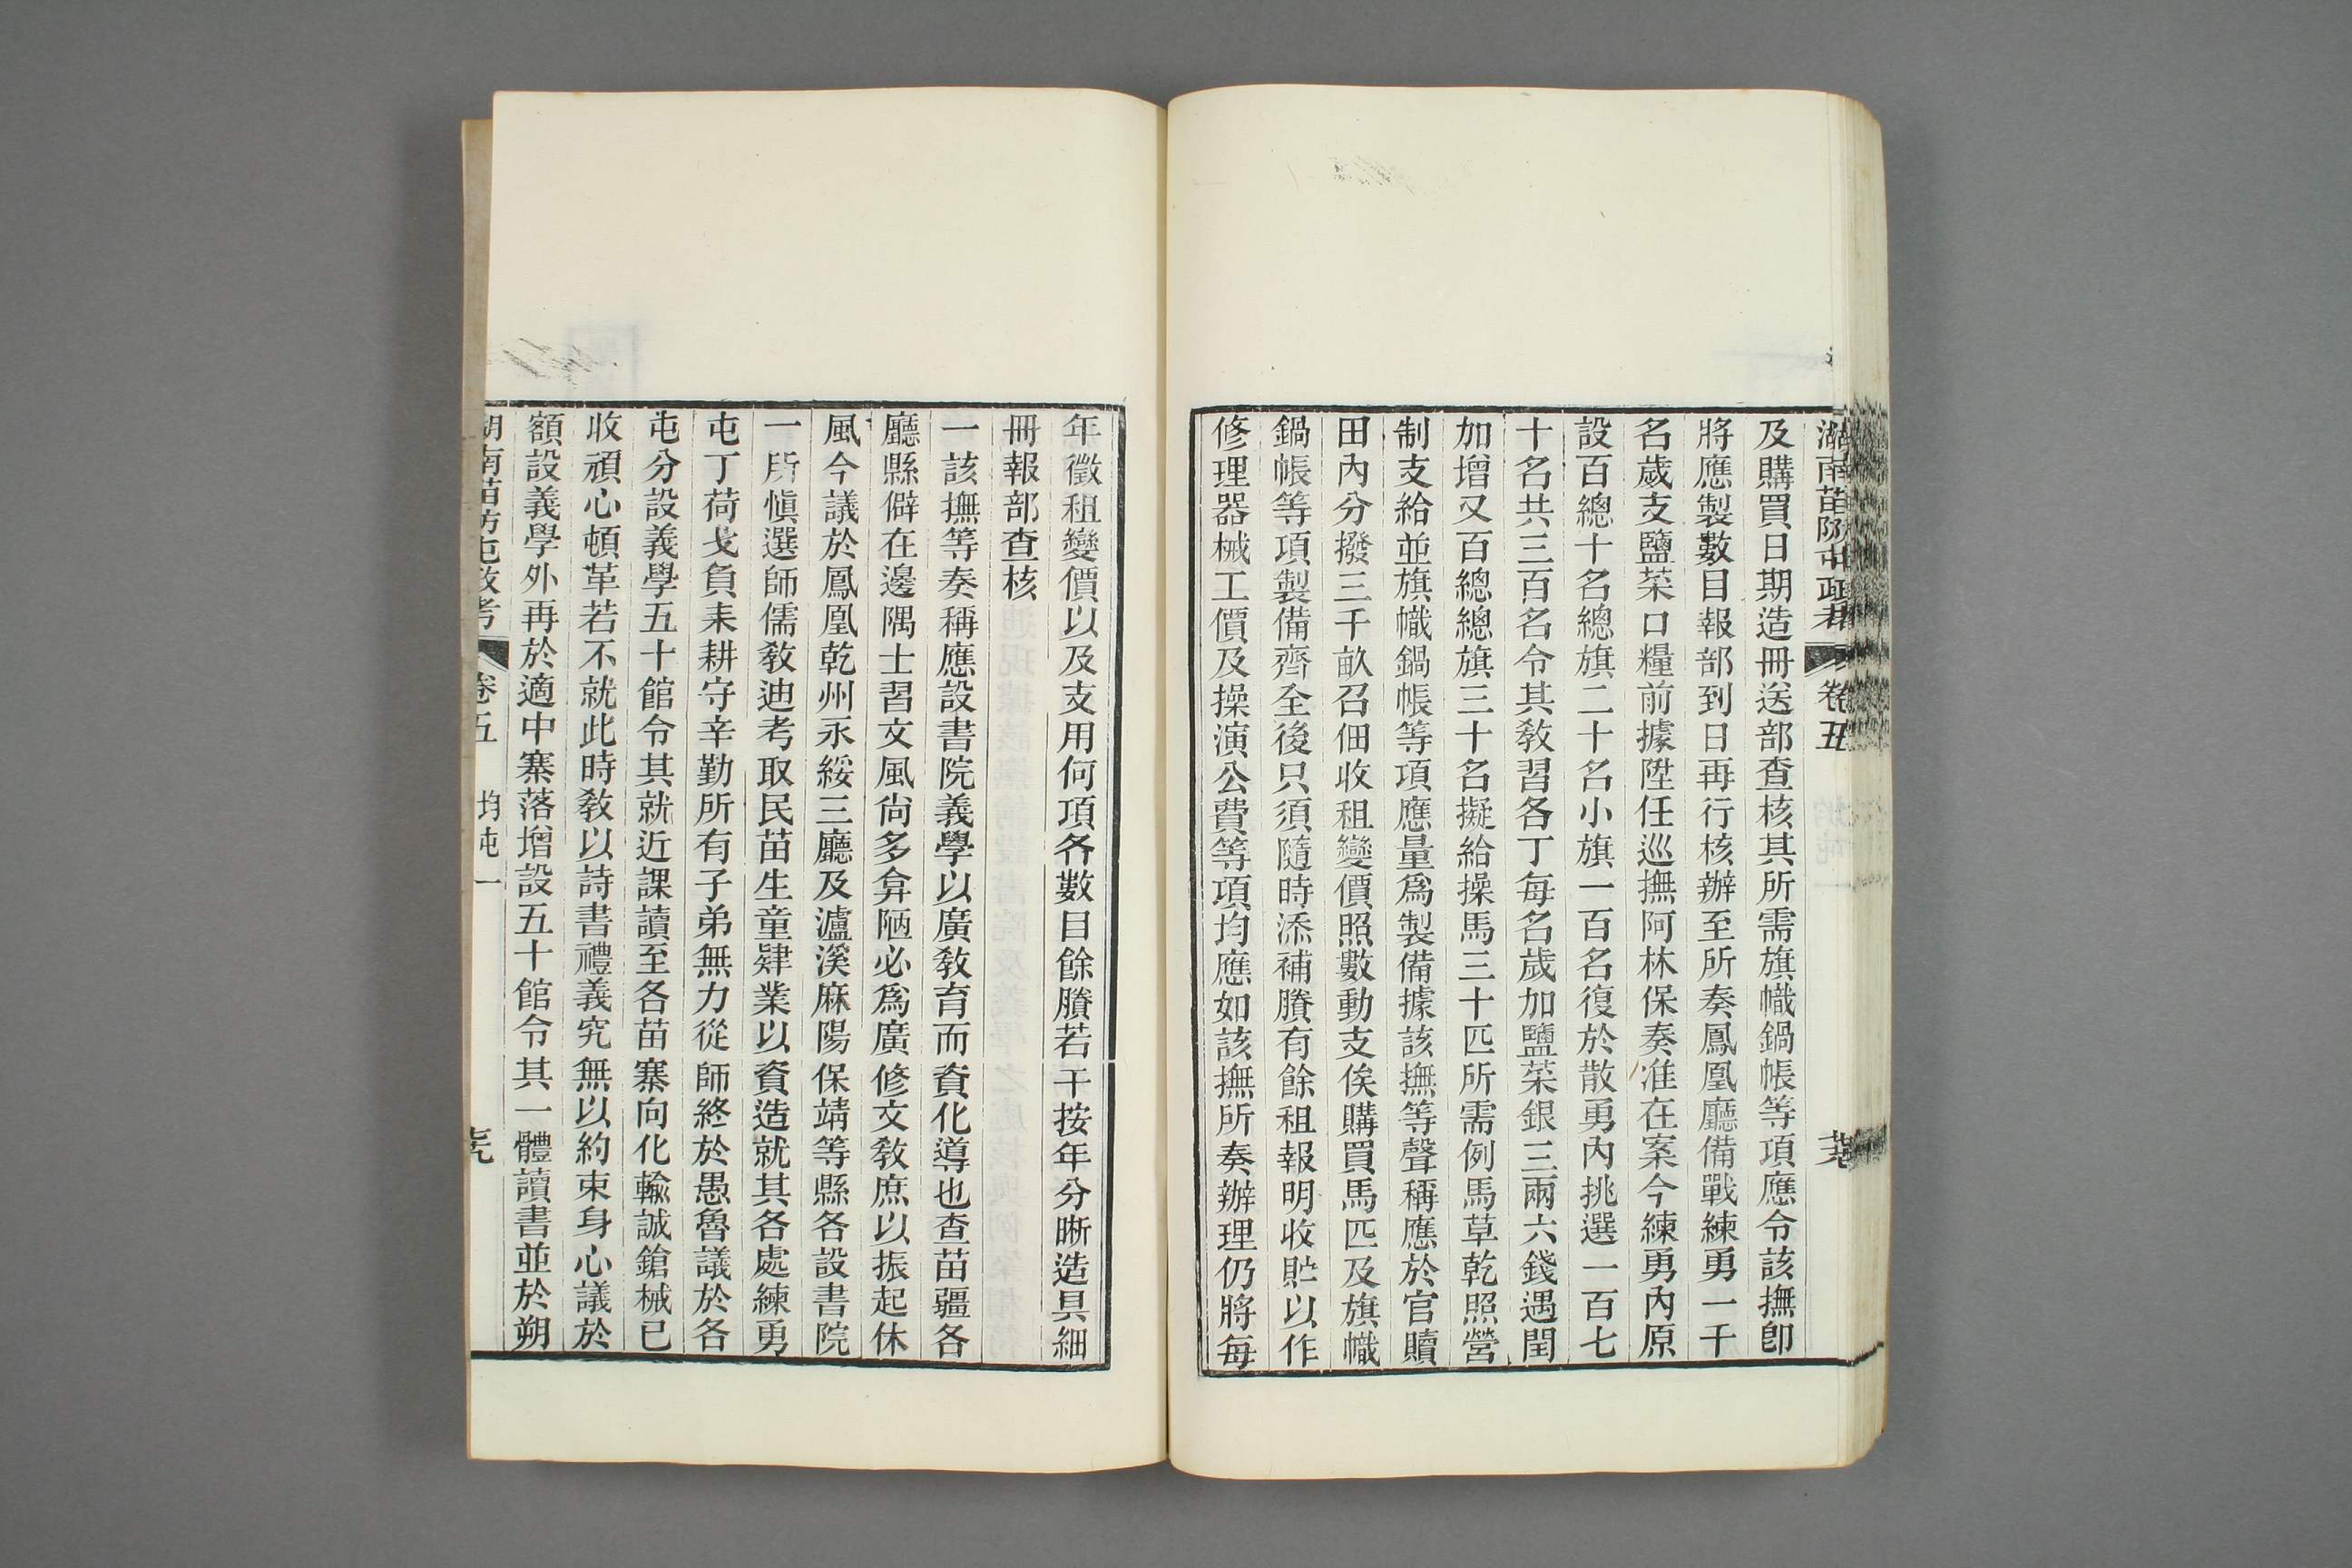 湖南苗防屯政考 卷五
及購買日期造冊送部查核其所需旗幟鍋帳等項應令該撫卽
將應製數目報部到日再行核辦至所奏鳳凰廳備戰練勇一千
名歲支鹽菜口糧前據陞任巡撫阿林保奏准在案今練勇內原
設百總十名總旗二十名小旗一百名復於散勇內挑選一百七
十名共三百名令其敎習各丁每名歲加鹽菜銀三兩六錢遇閏
加增又百總總旗三十名擬給操馬三十匹所需例馬草乾照營
制支給並旗幟鍋帳等項應量爲製備據該撫等聲稱應於官贖
田內分撥三千畝召佃收租變價照數動支俟購買馬匹及旗幟
鍋帳等項製備齊全後只須隨時添補賸有餘租報明收貯以作
修理器械工價及操演公費等項均應如該撫所奏辦理仍將每
年徵租變價以及支用何項各數目餘賸若干按年分晰造具細
冊報部查核
一該撫等奏稱應設書院義學以廣敎育而資化導也查苗疆各
廳縣僻在邊隅士習文風尙多弇陋必爲廣修文敎庶以振起休
風今議於鳳凰乾州永綏三廳及瀘溪麻陽保靖等縣各設書院
一所愼選師儒敎迪考取民苗生童肄業以資造就其各處練勇
屯丁荷戈負耒耕守辛勤所有子弟無力從師終於愚魯議於各
屯分設義學五十館令其就近課讀至各苗寨向化輸誠鎗械已
收頑心頓革若不就此時敎以詩書禮義究無以約束身心議於
額設義學外再於適中寨落增設五十館令其一體讀書並於朔
湖南苗防屯政考 卷五 均屯一